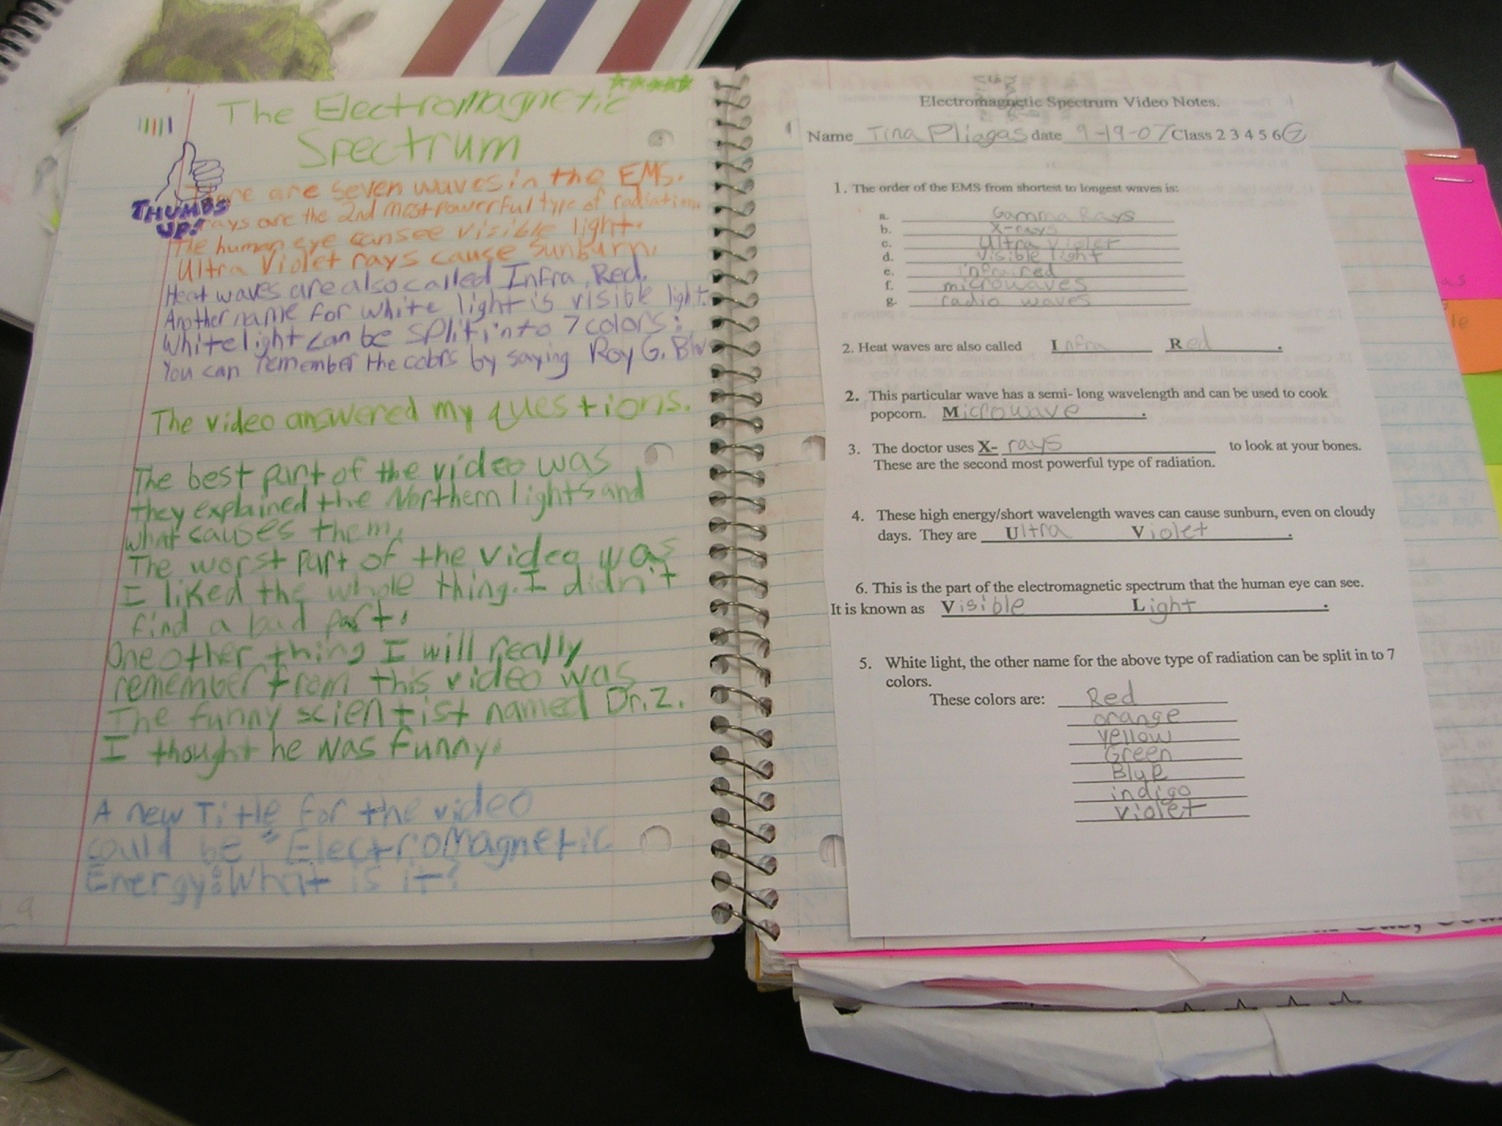 The Electromagnetic
Spectrum
THUMBS
UP!
There are seven waves in the EMS.
rays are the 2nd most powerful type of radiation.
The human eye can see visible light.
Ultra Violet rays cause sunburn.
Heat waves are also called Infra Red.
Another name for white light is visible light.
White light can be split into 7 colors:
You can remember the colors by saying Roy G. Biv
The video answered my questions.
The best part of the video was
they explained the Northern lights and
what causes them.
The worst part of the video was
I liked the whole thing. I didn't
find a bad part.
One other thing I will really
remember from this video was
The funny scientist named Dr. Z.
I thought he was funny.
A new Title for the video
could be "Electromagnetic
Energy: What is it?
9
Electromagnetic Spectrum Video Notes.
Name Tina Pliagas date 9-19-07 Class 2 3 4 5 6 7
1. The order of the EMS from shortest to longest waves is:
a. Gamma Rays
b. X-rays
c. Ultra Violet
d. Visible light
e. infrared
f. microwaves
g. radio waves
2. Heat waves are also called Infra Red.
2. This particular wave has a semi- long wavelength and can be used to cook
popcorn. Microwave.
3. The doctor uses X- rays to look at your bones.
These are the second most powerful type of radiation.
4. These high energy/short wavelength waves can cause sunburn, even on cloudy
days. They are Ultra Violet.
6. This is the part of the electromagnetic spectrum that the human eye can see.
It is known as Visible Light.
5. White light, the other name for the above type of radiation can be split in to 7
colors.
These colors are: Red
orange
yellow
Green
Blue
indigo
violet